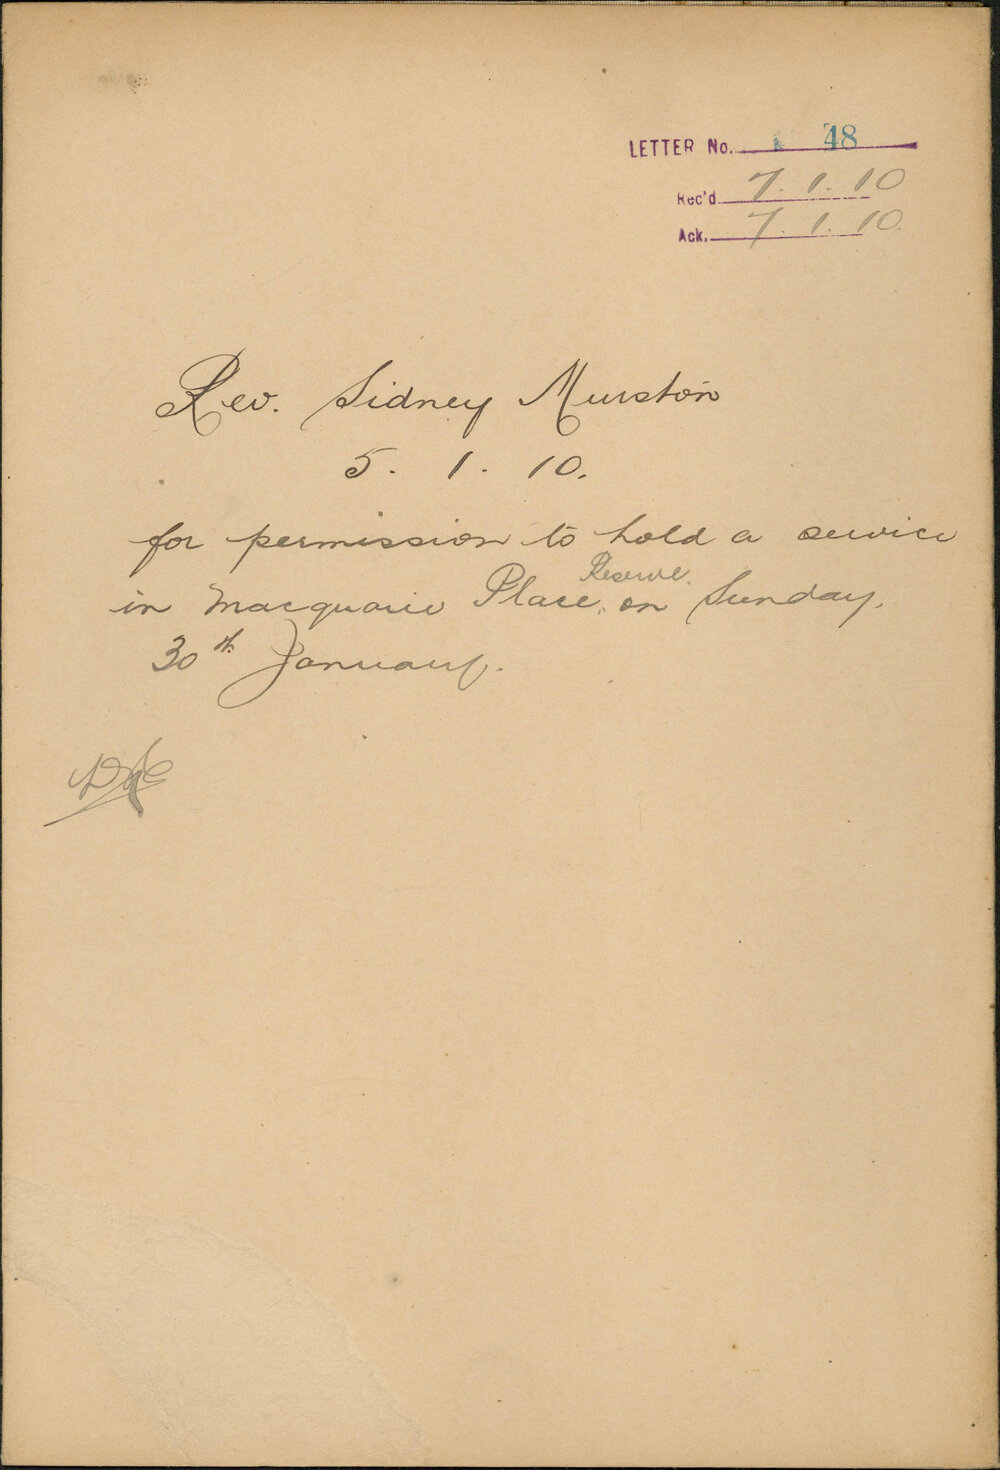 LETTER No. 48
Rec'd 7.1.10
Ack. 7.1.10.
Rev. Sidney Murston
5. 1. 10.
for permission to hold a service
Reserve.
in Macquarie Place, on Sunday,
30th January.